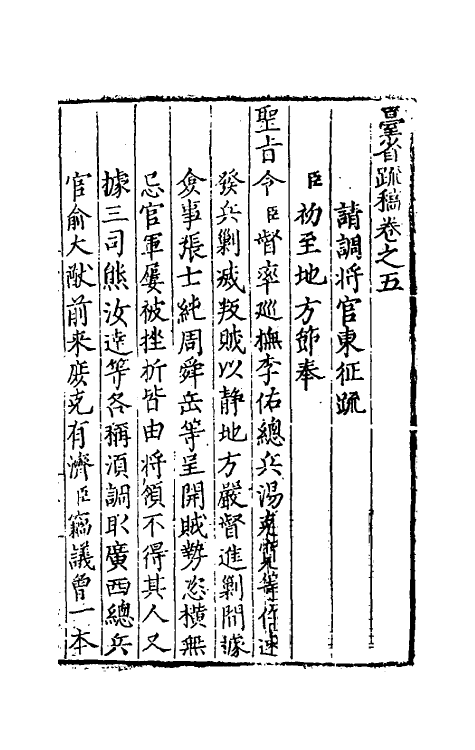 臺省疏稿卷之五
請調將官東征疏
臣初至地方節奉
聖旨令臣督率巡撫李佑總兵湯克寬等作速
發兵剿滅叛賊以靜地方嚴督進剿間據
僉事張士純周舜岳等呈開賊勢恣橫無
忌官軍屢被挫折皆由將領不得其人又
據三司熊汝達等各稱須調取廣西總兵
官俞大猷前來庶克有濟臣竊議曾一本